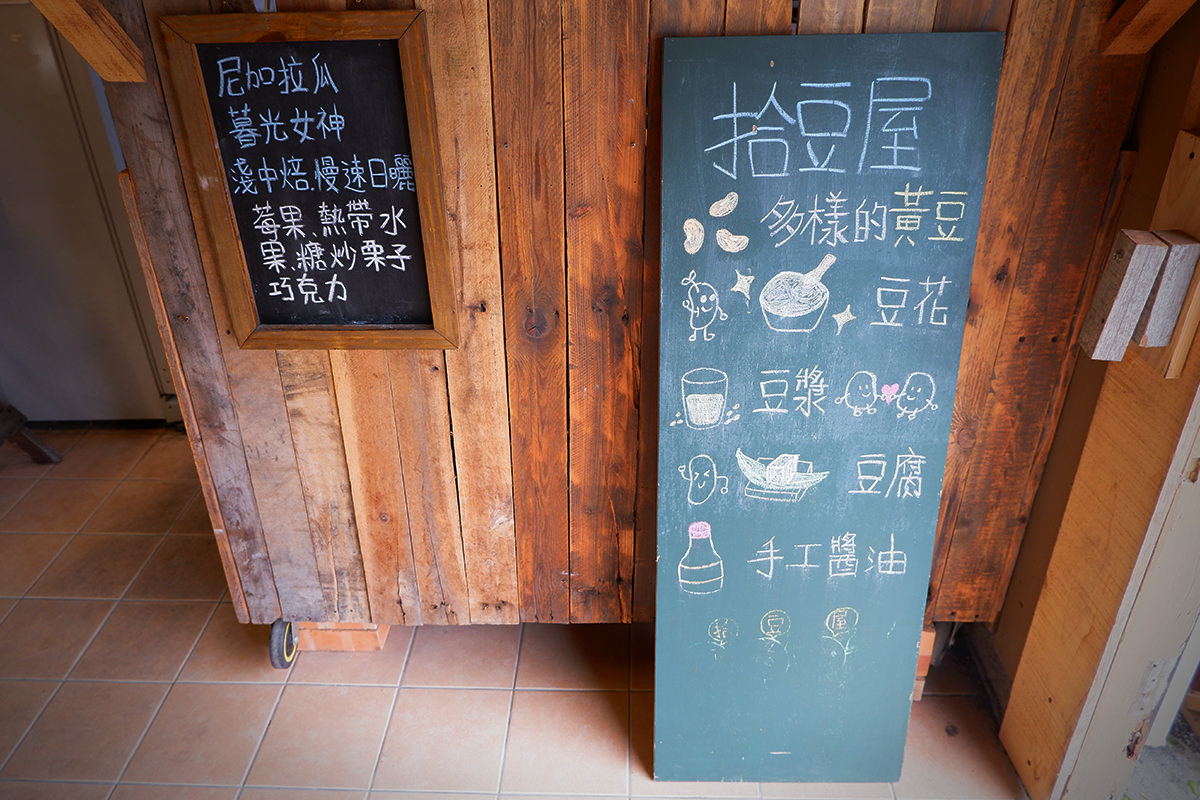 尼加拉瓜
暮光女神
淺中焙、慢速日曬
莓果、熱帶水
果、糖炒栗子
巧克力
拾豆屋
多樣的黃豆
豆花
豆漿
豆腐
手工醬油
拾豆屋